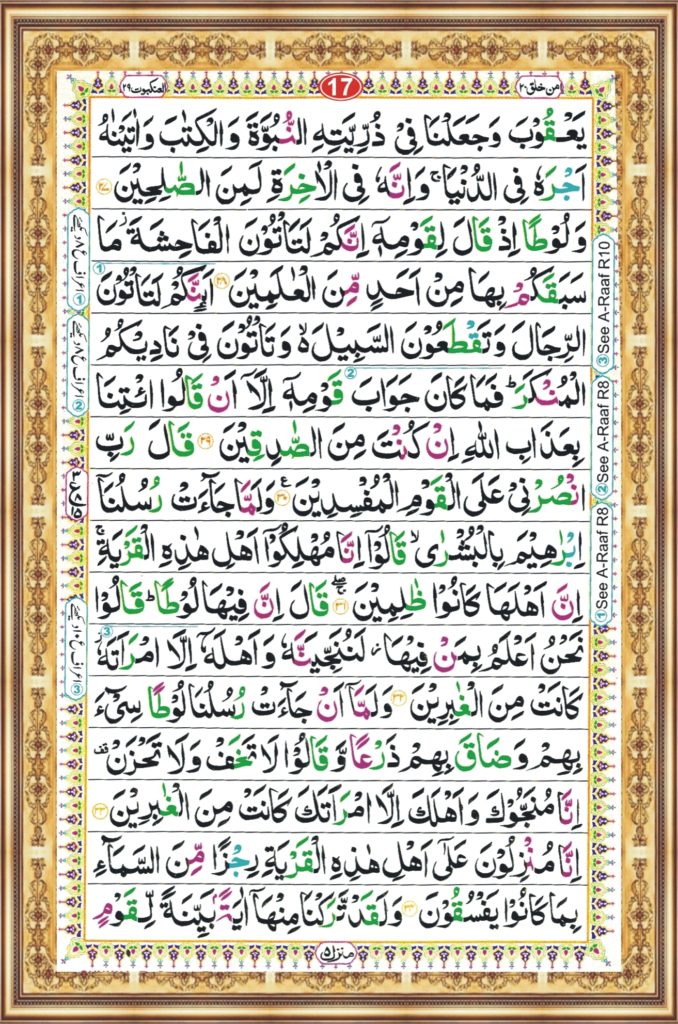 امن خلق ٢٠
17
العنكبوت ٢٩
يَعْقُوْبَ وَجَعَلْنَا فِيْ ذُرِّيَّتِهِ النُّبُوَّةَ وَالْكِتٰبَ وَاٰتَيْنٰهُ
اَجْرَهٗ فِي الدُّنْيَا ۚ وَاِنَّهٗ فِي الْاٰخِرَةِ لَمِنَ الصّٰلِحِيْنَ ﴿٢٧﴾
وَلُوْطًا اِذْ قَالَ لِقَوْمِهٖٓ اِنَّكُمْ لَتَاْتُوْنَ الْفَاحِشَةَ ۡ مَا
سَبَقَكُمْ بِهَا مِنْ اَحَدٍ مِّنَ الْعٰلَمِيْنَ ﴿٢٨﴾ اَئِنَّكُمْ لَتَاْتُوْنَ
الرِّجَالَ وَتَقْطَعُوْنَ السَّبِيْلَ ۙ وَتَاْتُوْنَ فِيْ نَادِيْكُمُ
الْمُنْكَرَ ؕ فَمَا كَانَ جَوَابَ قَوْمِهٖٓ اِلَّاۤ اَنْ قَالُوا ائْتِنَا
بِعَذَابِ اللّٰهِ اِنْ كُنْتَ مِنَ الصّٰدِقِيْنَ ﴿٢٩﴾ قَالَ رَبِّ
انْصُرْنِيْ عَلَى الْقَوْمِ الْمُفْسِدِيْنَ ﴿٣٠﴾ۧ وَلَمَّا جَآءَتْ رُسُلُنَاۤ
اِبْرٰهِيْمَ بِالْبُشْرٰى ۙ قَالُوْۤا اِنَّا مُهْلِكُوْۤا اَهْلِ هٰذِهِ الْقَرْيَةِ ۚ
اِنَّ اَهْلَهَا كَانُوْا ظٰلِمِيْنَ ﴿٣١﴾ۚۖ قَالَ اِنَّ فِيْهَا لُوْطًا ؕ قَالُوْا
نَحْنُ اَعْلَمُ بِمَنْ فِيْهَا ٝ لَنُنَجِّيَنَّهٗ وَاَهْلَهٗۤ اِلَّا امْرَاَتَهٗ ٝ
كَانَتْ مِنَ الْغٰبِرِيْنَ ﴿٣٢﴾ وَلَمَّاۤ اَنْ جَآءَتْ رُسُلُنَا لُوْطًا سِيْٓءَ
بِهِمْ وَضَاقَ بِهِمْ ذَرْعًا وَّقَالُوْا لَا تَخَفْ وَلَا تَحْزَنْ ۟
اِنَّا مُنَجُّوْكَ وَاَهْلَكَ اِلَّا امْرَاَتَكَ كَانَتْ مِنَ الْغٰبِرِيْنَ ﴿٣٣﴾
اِنَّا مُنْزِلُوْنَ عَلٰۤى اَهْلِ هٰذِهِ الْقَرْيَةِ رِجْزًا مِّنَ السَّمَآءِ
بِمَا كَانُوْا يَفْسُقُوْنَ ﴿٣٤﴾ وَلَقَدْ تَّرَكْنَا مِنْهَاۤ اٰيَةًۢ بَيِّنَةً لِّقَوْمٍ
① See A-Raaf R8 ② See A-Raaf R8 ③ See A-Raaf R10
① اعراف ع ٨ دیکھئے
② اعراف ع ٨ دیکھئے
③ اعراف ع ١٠ دیکھئے
منزل ٥